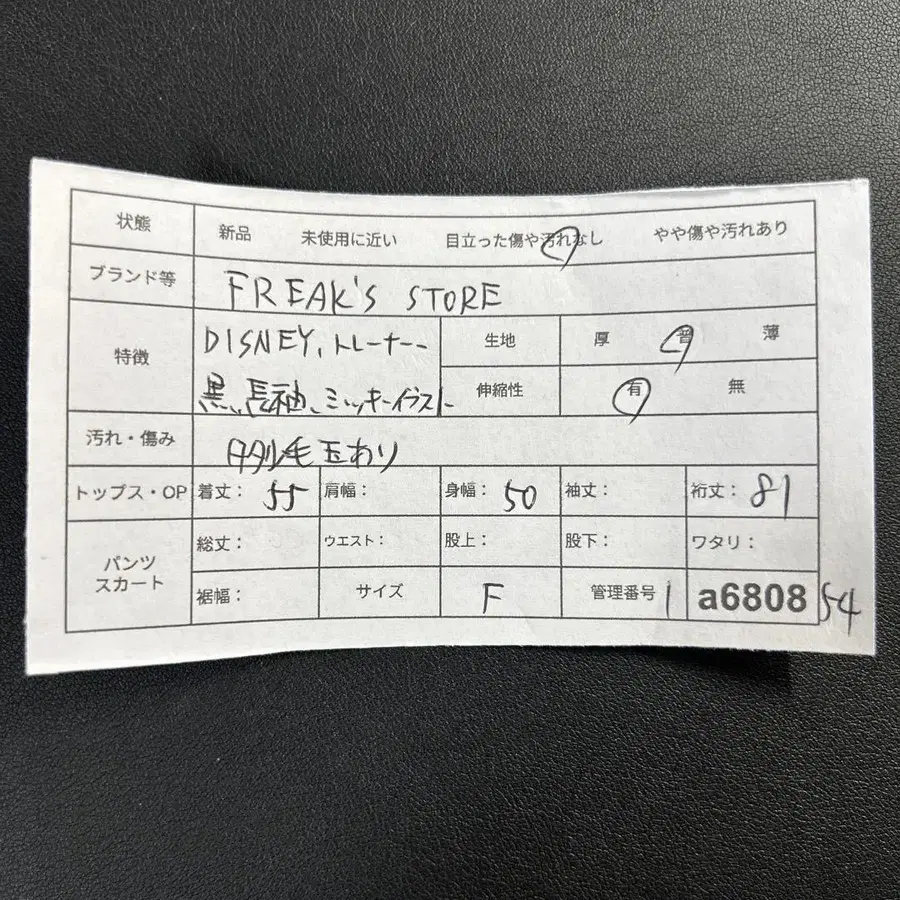 状態 新品 未使用に近い 目立った傷や汚れなし やや傷や汚れあり
ブランド等 FREAK'S STORE
特徴 DISNEY、トレーナー
黒、長袖、ミッキーイラスト
生地 厚 普 薄
伸縮性 有 無
汚れ・傷み 毛玉あり
トップス・OP 着丈: 55 肩幅: 身幅: 50 袖丈: 裄丈: 81
パンツ
スカート
総丈: ウエスト: 股上: 股下: ワタリ:
裾幅: サイズ F 管理番号 1 a6808 54